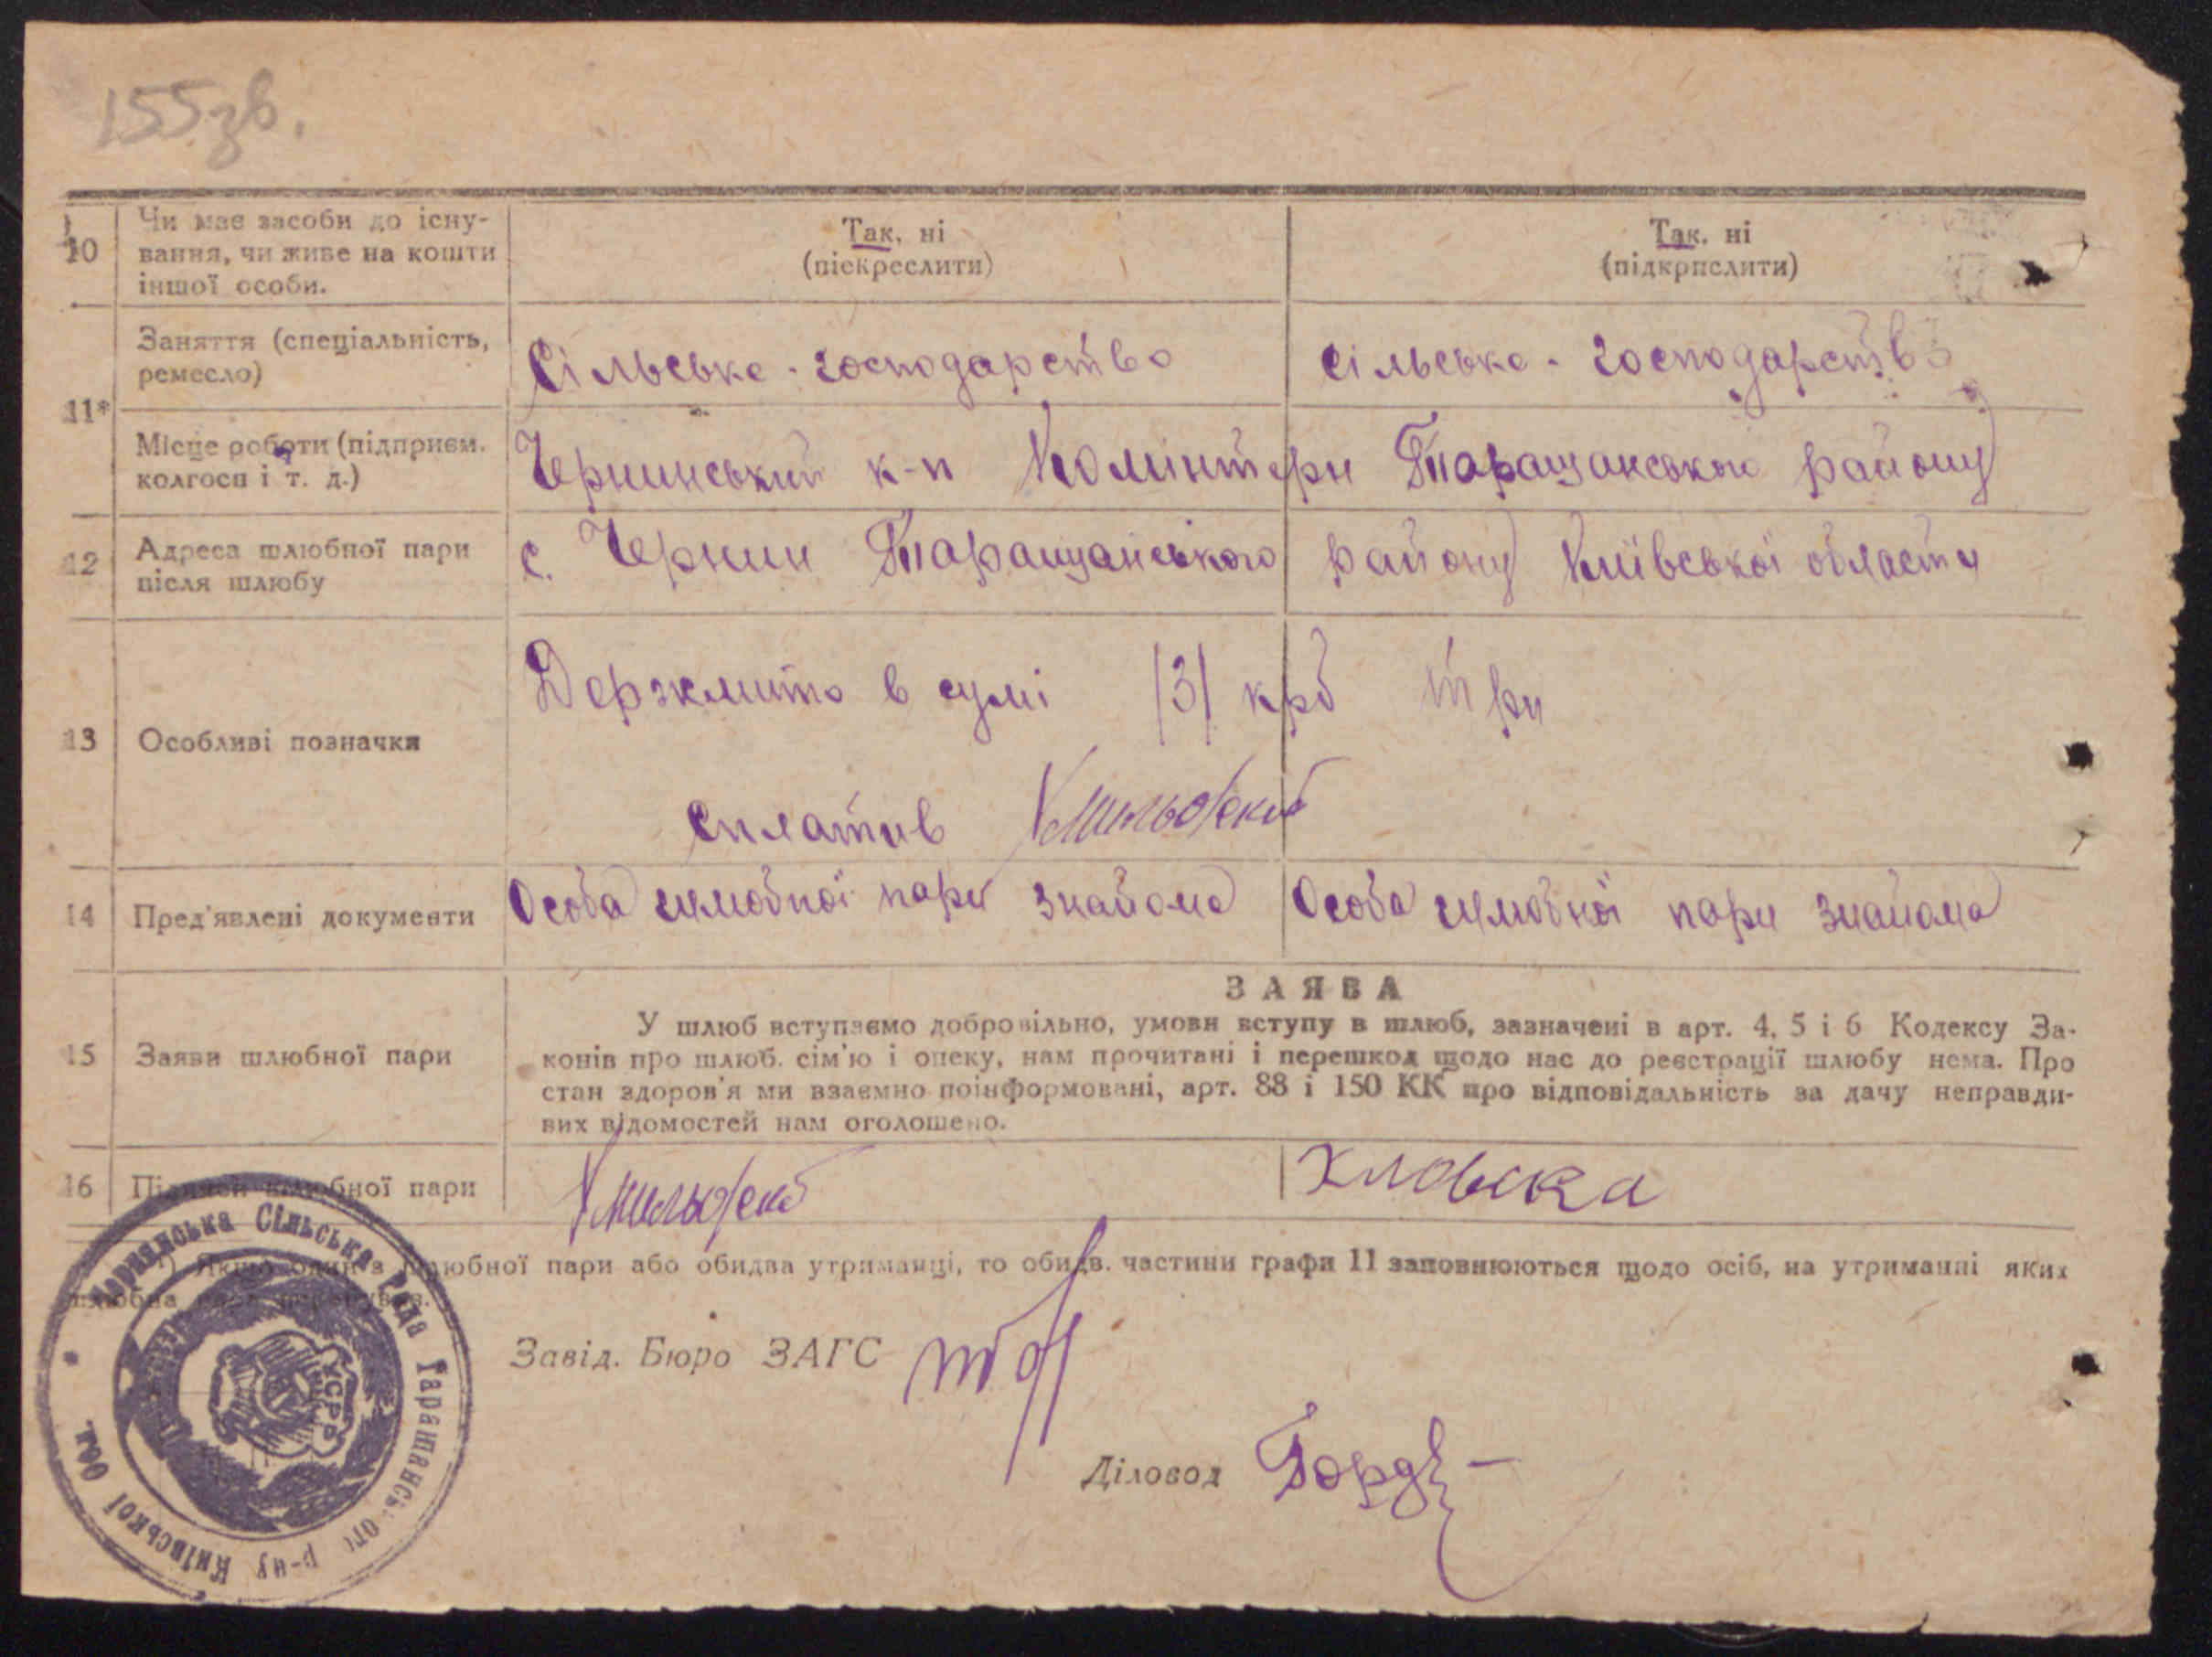 155зв.
10 Чи має засоби до існу-
вання, чи живе на кошти
іншої особи.
Так, ні
(піскреслити)
Так, ні
(підкрпслити)
11*
Заняття (спеціальність,
ремесло)
Сільське - господарство
сільське - господарство
Місце роботи (підприєм.
колгосп і т. д.)
Чернинський к-п Комінтерн Таращанського району
12 Адреса шлюбної пари
після шлюбу
с. Чернин Таращанського району Київської области
13 Особливі позначки
Держмито в сумі /3/ крб три
сплатив
14 Пред'явлені документи
Особа шлюбної пари знайома
Особа шлюбної пари знайома
15 Заяви шлюбної пари
ЗАЯВА
У шлюб вступаємо добровільно, умови вступу в шлюб, зазначені в арт. 4, 5 і 6 Кодексу За-
конів про шлюб. сім'ю і опеку, нам прочитані і перешкод щодо нас до реєстрації шлюбу нема. Про
стан здоров'я ми взаємно поінформовані, арт. 88 і 150 КК про відповідальність за дачу неправди-
вих відомостей нам оголошено.
16 Підписи шлюбної пари
*) Якщо один з шлюбної пари або обидва утриманці, то обидв. частини графи 11 заповнюються щодо осіб, на утриманні яких
шлюбна пара перебуває.
Завід. Бюро ЗАГС
Діловод
Чернинська Сільська Рада ТаращансьКого р-ну Київської Обл.
УСРР